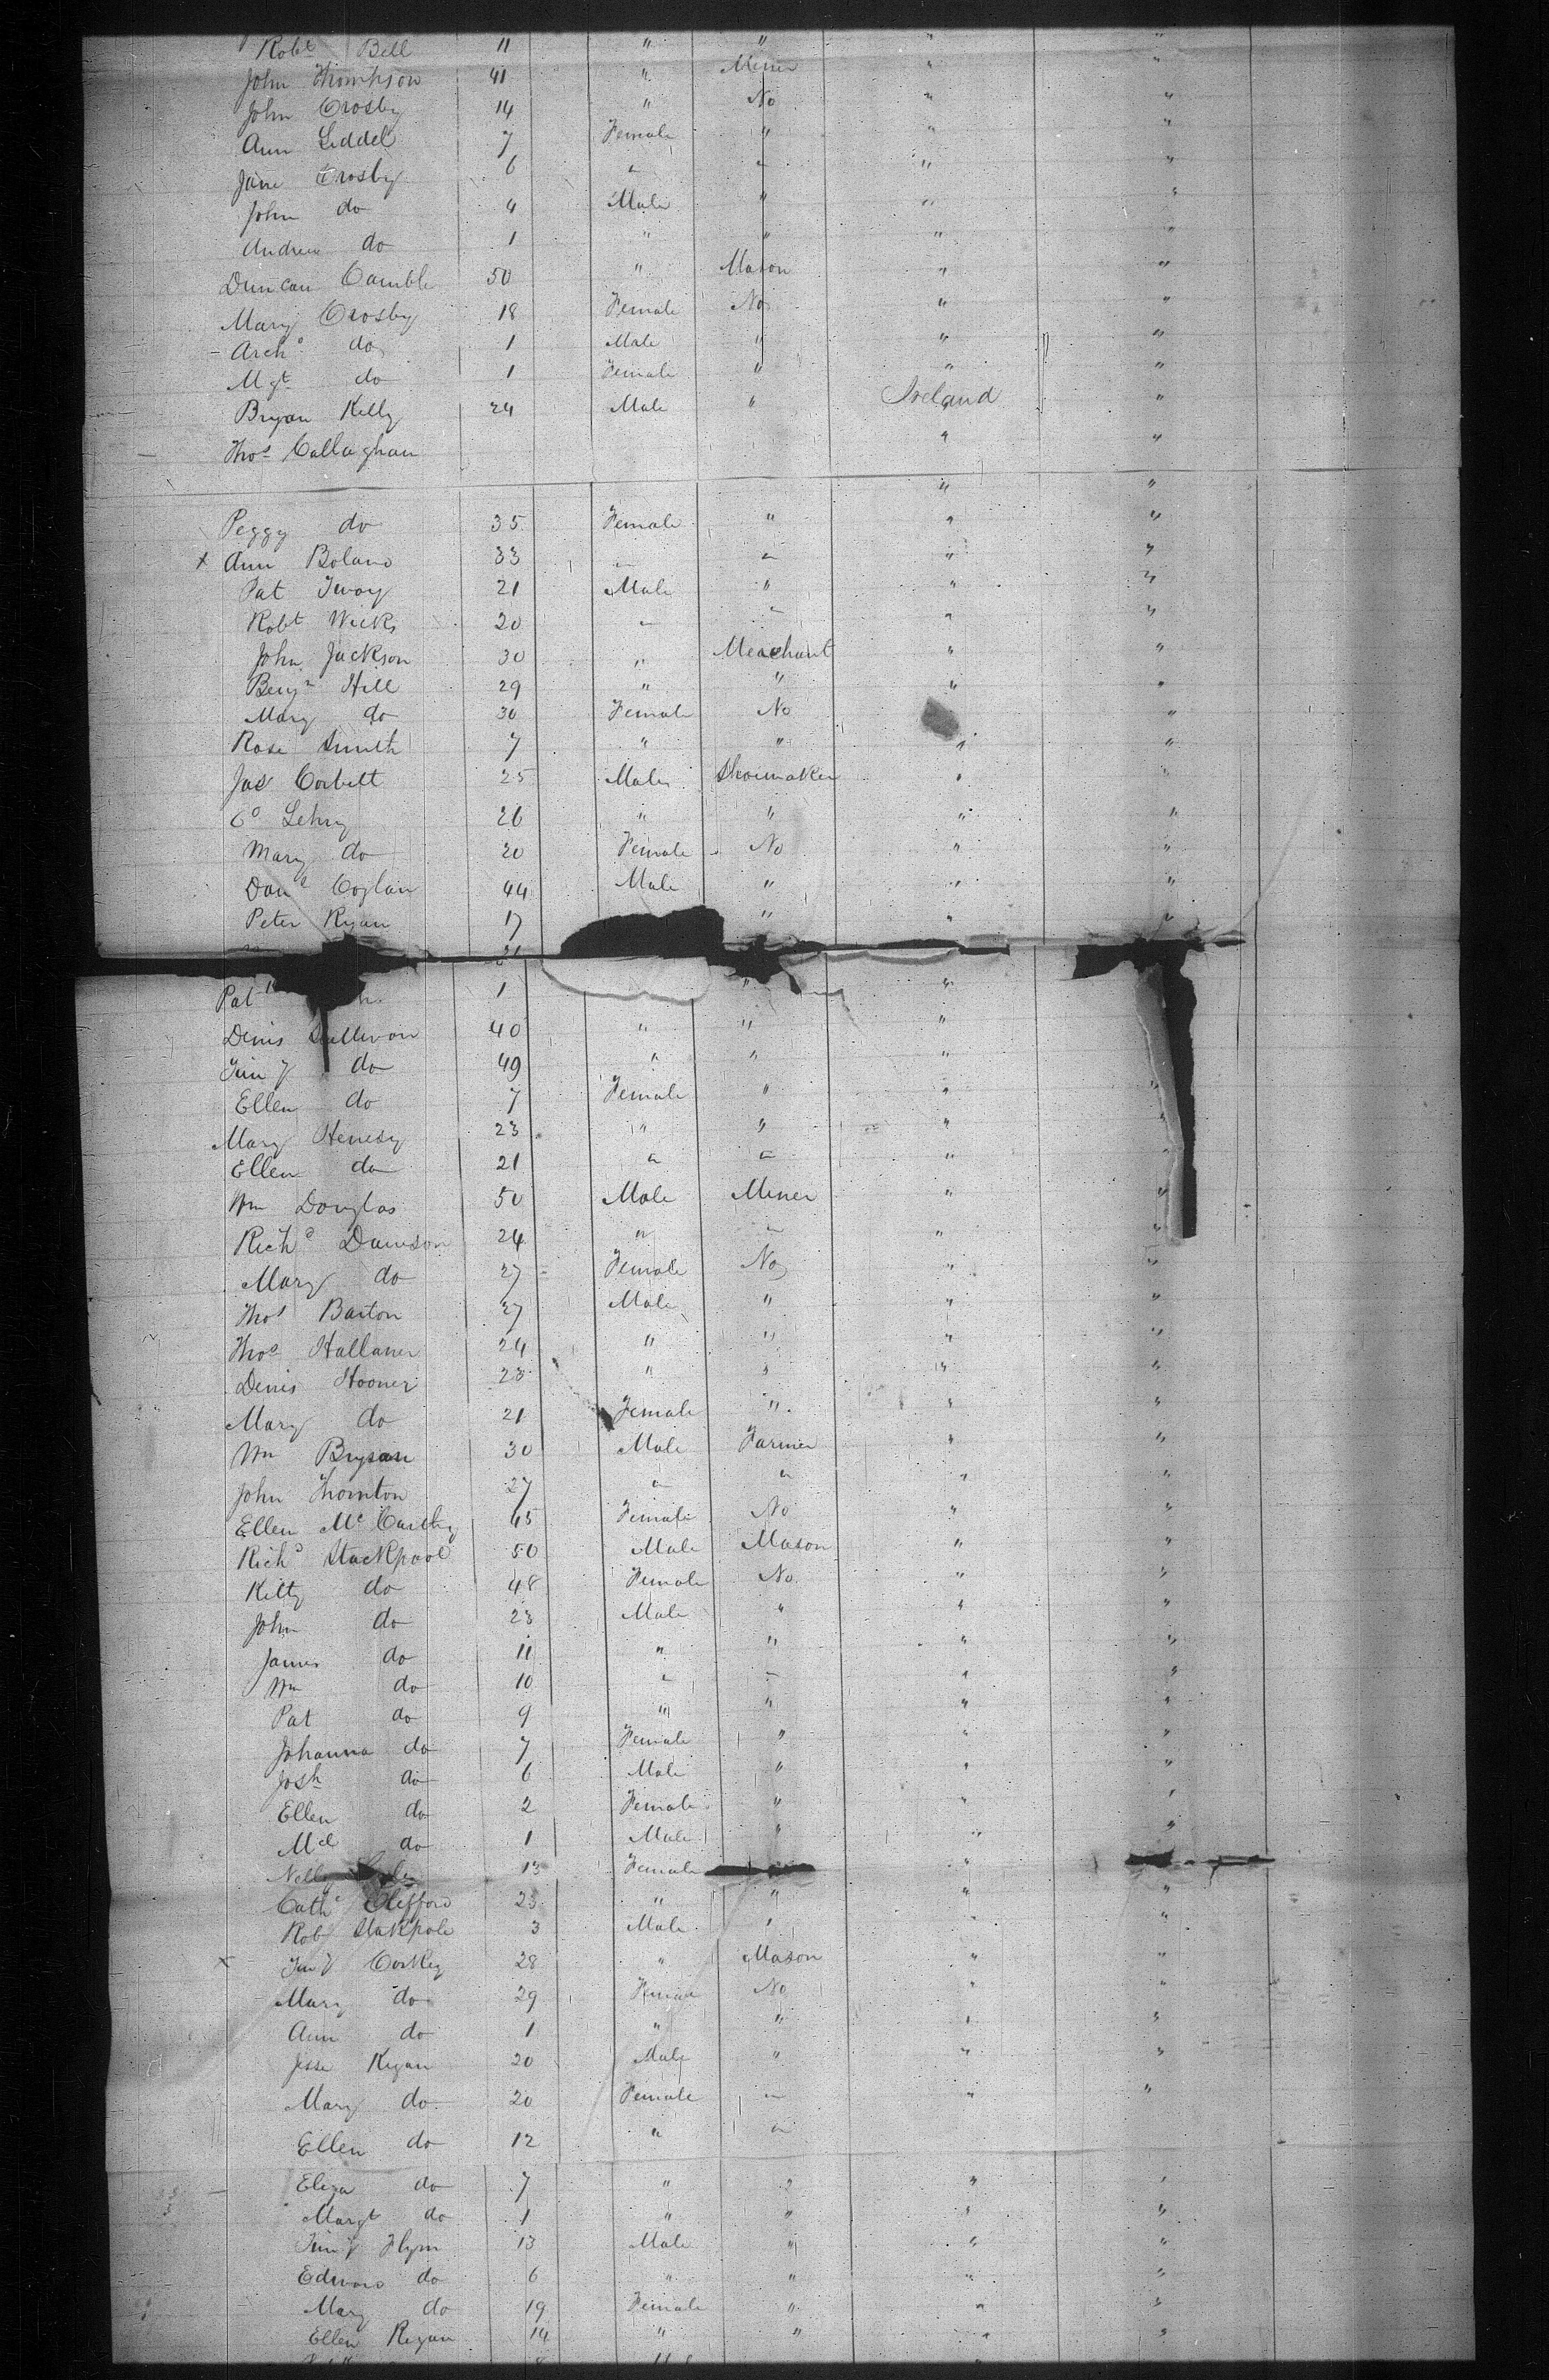 Robt Bell 11 " " " "
John Thompson 41 " Miner " "
John Crosby 14 " No " "
Ann Liddel 7 Female " " "
Jane Crosby 6 " " " "
John do 4 Male " " "
Andrew do 1 " " " "
Duncan Camble 50 " Mason " "
Mary Crosby 18 Female No " "
Archd do 1 Male " " "
Mgt do 1 Female " " "
Bryan Kelly 24 Male " Ireland "
Thos Callaghan " "
" "
Peggy do 35 Female " " "
x Ann Boland 33 " " " "
Pat 21 Male " " "
Robt Wicks 20 " " " "
John Jackson 30 " Merchant " "
Benjn Hill 29 " " " "
Mary do 30 Female No "
Rose Smith 7 " " " "
Jas Corbett 25 Male Shoemaker " "
Lehry 26 " " " "
Mary do 20 Female No " "
Danl Coglan 44 Male " " "
Peter Ryan 17 " " "
Pat 1 " "
Denis Sullivan 40 " " "
Timy do 49 " " "
Ellen do 7 Female " " "
Mary Henesy 23 " " "
Ellen do 21 " " " "
Wm Douglas 50 Male Miner " "
Richd Davidson 24 " " " "
Mary do 27 Female No " "
Thos Barton 27 Male " " "
Thos Hallaner 24 " " " "
Denis Hooner 23 " " " "
Mary do 21 Female " " "
Wm Bryson 30 Male Farmer " "
John Thornton 27 " " " "
Ellen McCarthy 45 Female No " "
Richd Stackpool 50 Male Mason " "
Kitty do 48 Female No " "
John do 23 Male " " "
James do 11 " " " "
Wm do 10 " " " "
Pat do 9 " " " "
Johanna do 7 Female " " "
Josh do 6 Male " " "
Ellen do 2 Female " " "
Mcl do 1 Male " " "
Nelly 13 Female "
Cathe Clifford 23 " " " "
Robt Stakpole 3 Male " " "
x Timy Corkey 28 " Mason " "
Mary do 29 Female No " "
Ann do 1 " " " "
Jesse Regan 20 Male " " "
Mary do 20 Female " " "
Ellen do 12 " "
Eliza do 7 " " " "
Margt do 1 " " " "
Timy Flynn 13 Male " " "
Edward do 6 " " " "
Mary do 19 Female " " "
Ellen Regan 14 " " " "